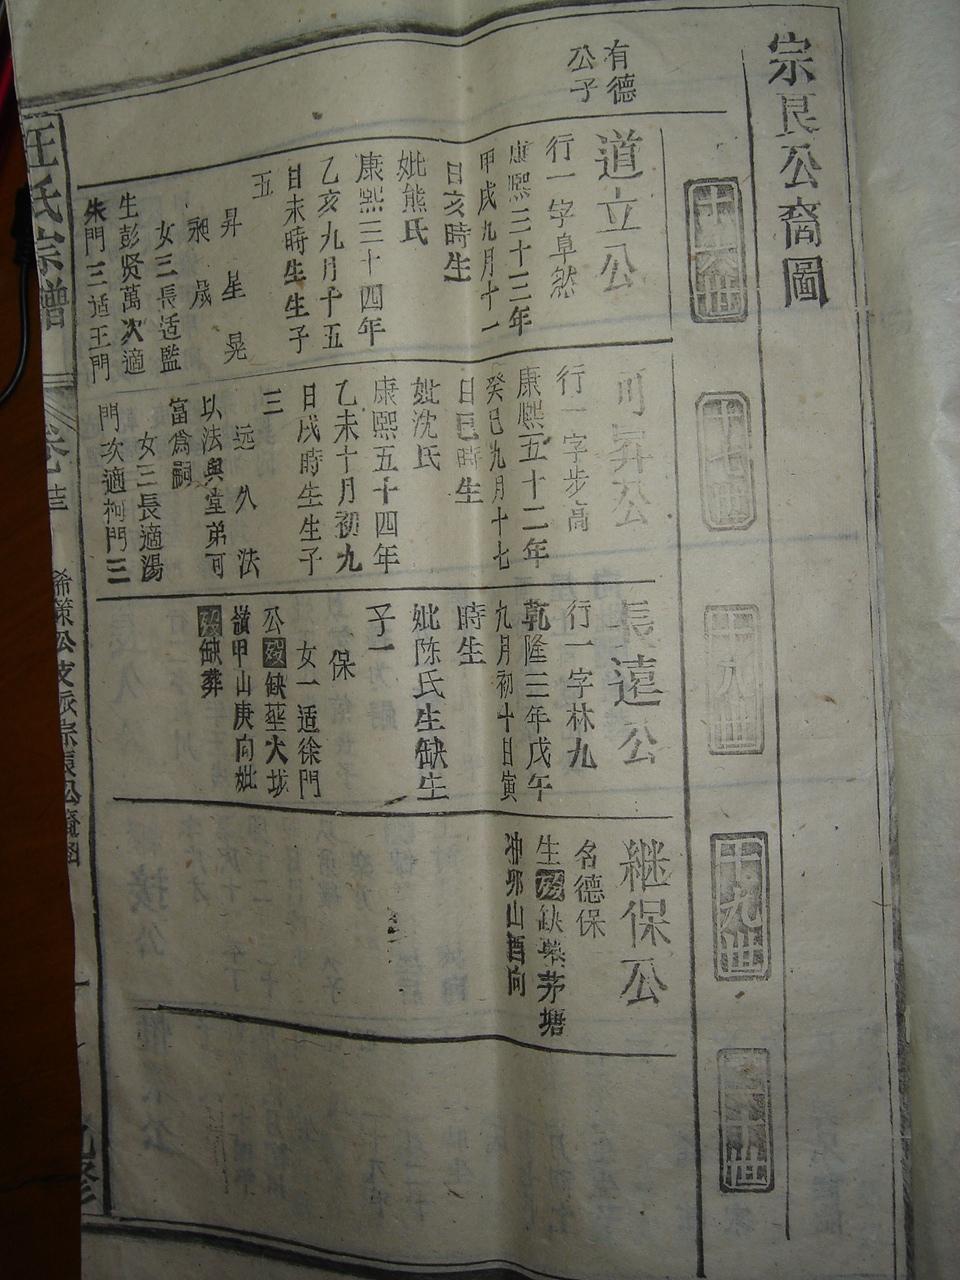 宗良公裔圖
十六世
十七世
十八世
十九世
二十世
有德
公子
道立公
行一字卓然
康熙三十三年
甲戌九月十一
日亥時生
妣熊氏
康熙三十四年
乙亥九月十五
日未時生生子
五
昇星晃
昶晟
女三長适監
生彭贤萬次適
朱門三适王門
可昇公
行一字步高
康熙五十二年
癸巳九月十七
日巳時生
妣沈氏
康熙五十四年
乙未十月初九
日戌時生生子
三
远久法
以法與堂弟可
富為嗣
女三長適湯
門次適柯門三
長遠公
行一字林九
乾隆三年戊午
九月初十日寅
時生
妣陈氏生缺生
子一
保
女一适徐門
公殁缺塟大坳
嶺甲山庚向妣
殁缺葬
继保公
名德保
生殁缺塟茅塘
冲卯山酉向
汪氏宗譜
卷三
希策公支派宗良公裔圖
一
九修